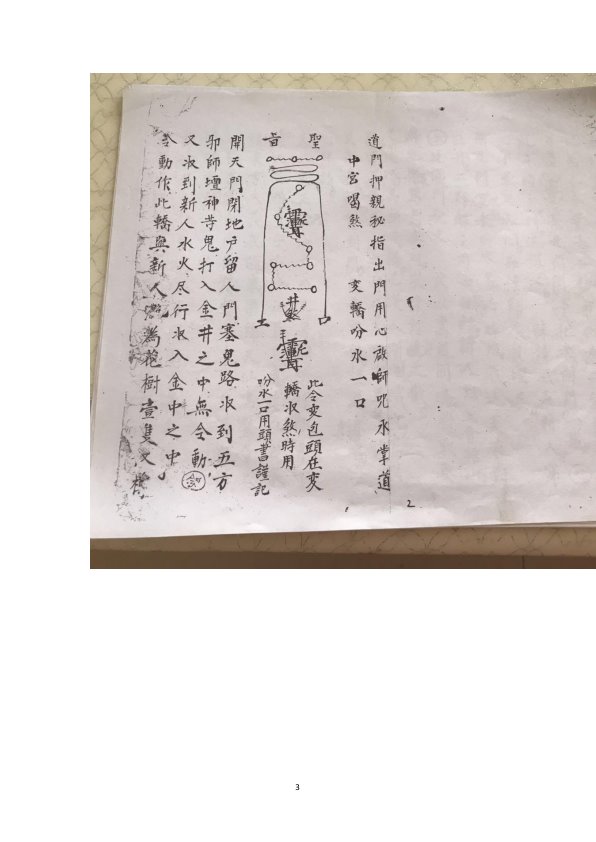 道門押親秘指出門用心啟師咒水掌道
中宮喝煞 变轎吩水一口
聖旨
井煞
此令变包頭在变
轎収煞時用
吩水一口用頭書謹記
開天門閉地户留人門塞鬼路収到五方
邪師壇神等鬼打入金井之中無令動
又収到新人水火尽行収入金中之中
令動作此轎與新人
為
樹壹隻又
2
3